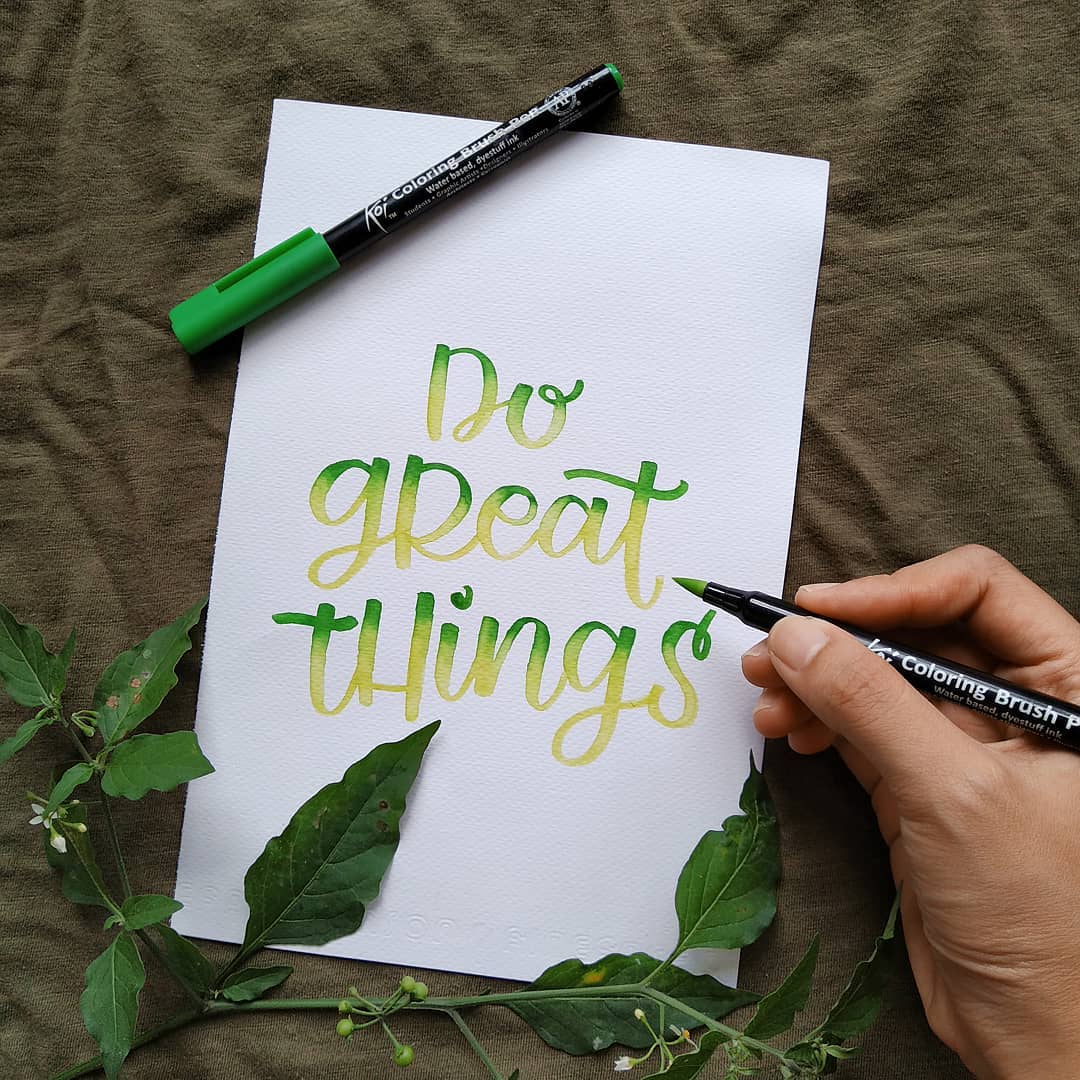 Koi™ Coloring Brush Pen
Water based, dyestuff ink
Students • Graphic Artists • Designers • Illustrators
AP
Do
gReat
tHings
Koi Coloring Brush P
Water based, dyestuff ink